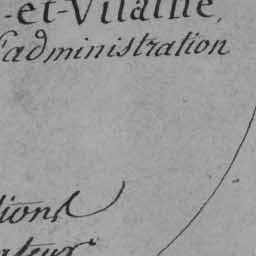 -et-Vilaine,
l'administration
tions
ateur